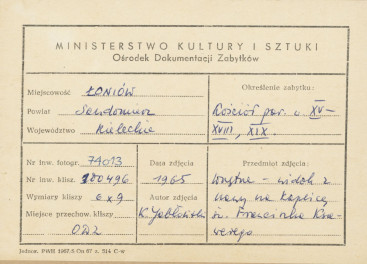 MINISTERSTWO KULTURY I SZTUKI
Ośrodek Dokumentacji Zabytków
Miejscowość ŁONIÓW
Powiat Sandomierz
Województwo Kieleckie
Określenie zabytku:
Kościół par. XV-
XVIII, XIX.
Nr inw. fotogr. 74013
Nr inw. klisz. 100496
Wymiary kliszy 6x9
Miejsce przechow. kliszy
ODZ
Data zdjęcia
1965
Autor zdjęcia
K. Jabłoński
Przedmiot zdjęcia:
wnętrze - widok z
nawy na kaplicę
św. Franciszka Ksa-
werego